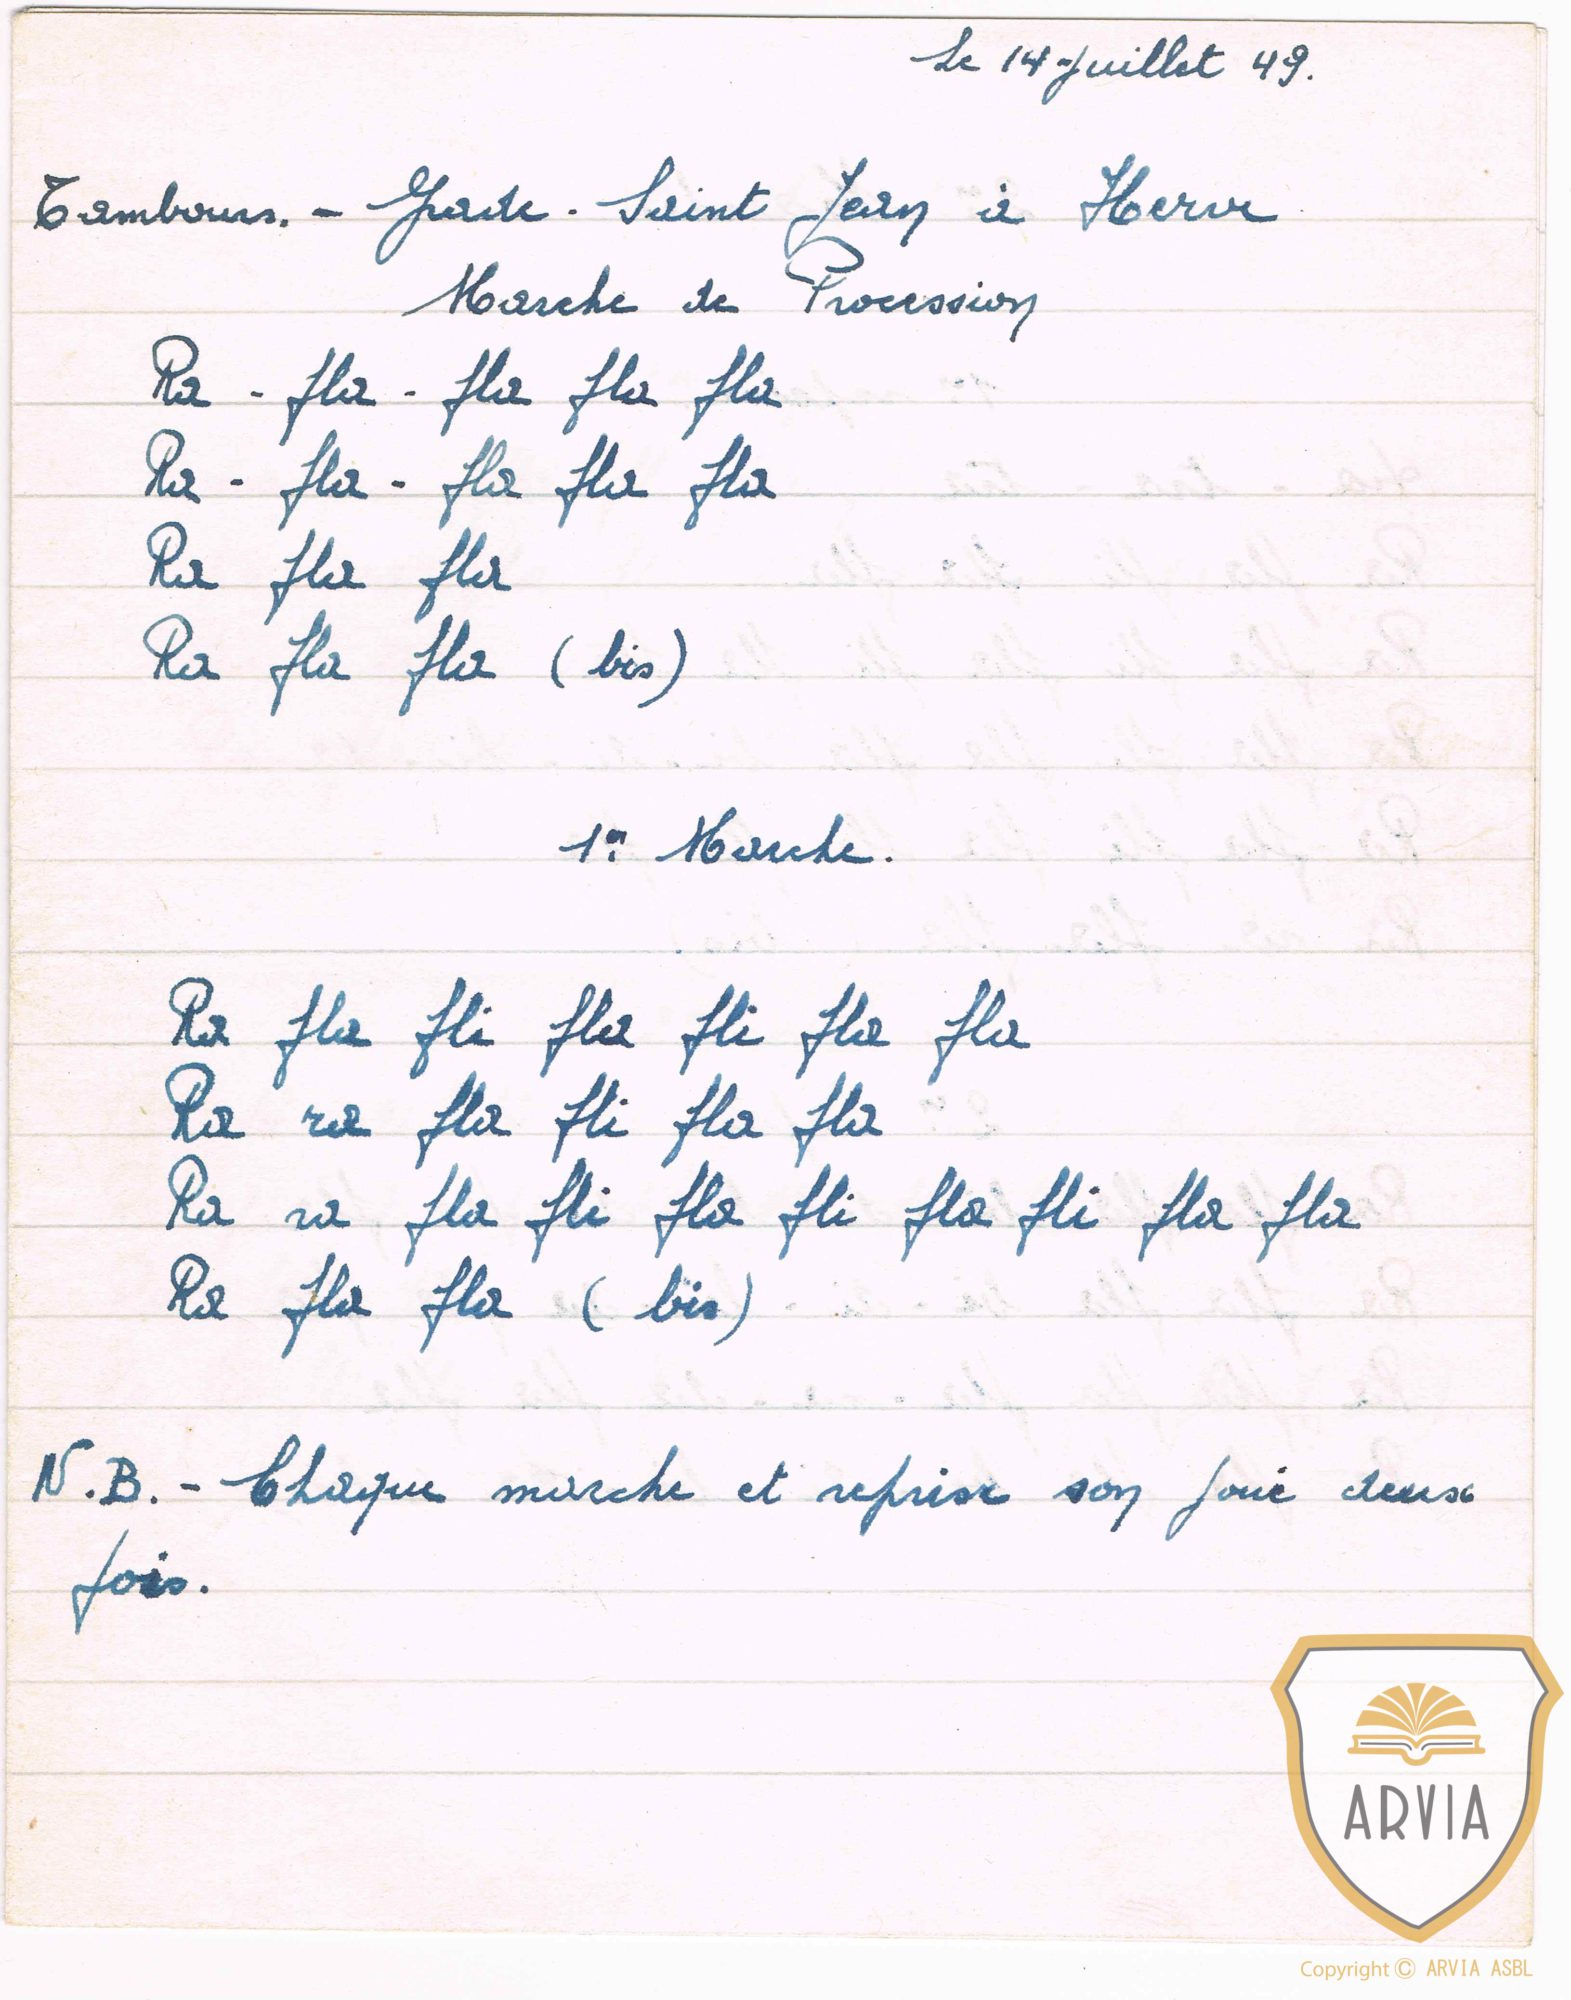 Le 14-Juillet 49.
Tambours. - Garde - Saint Jean à Herve
Marche de Procession
Ra - fla - fla fla fla
Ra - fla - fla fla fla
Ra fla fla
Ra fla fla (bis)
1er Marche.
Ra fla fli fla fli fla fla
Ra ra fla fli fla fla
Ra ra fla fli fla fli fla fli fla fla
Ra fla fla (bis)
N.B. - Chaque marche et reprise son joué deux
fois.
ARVIA
Copyright © ARVIA ASBL